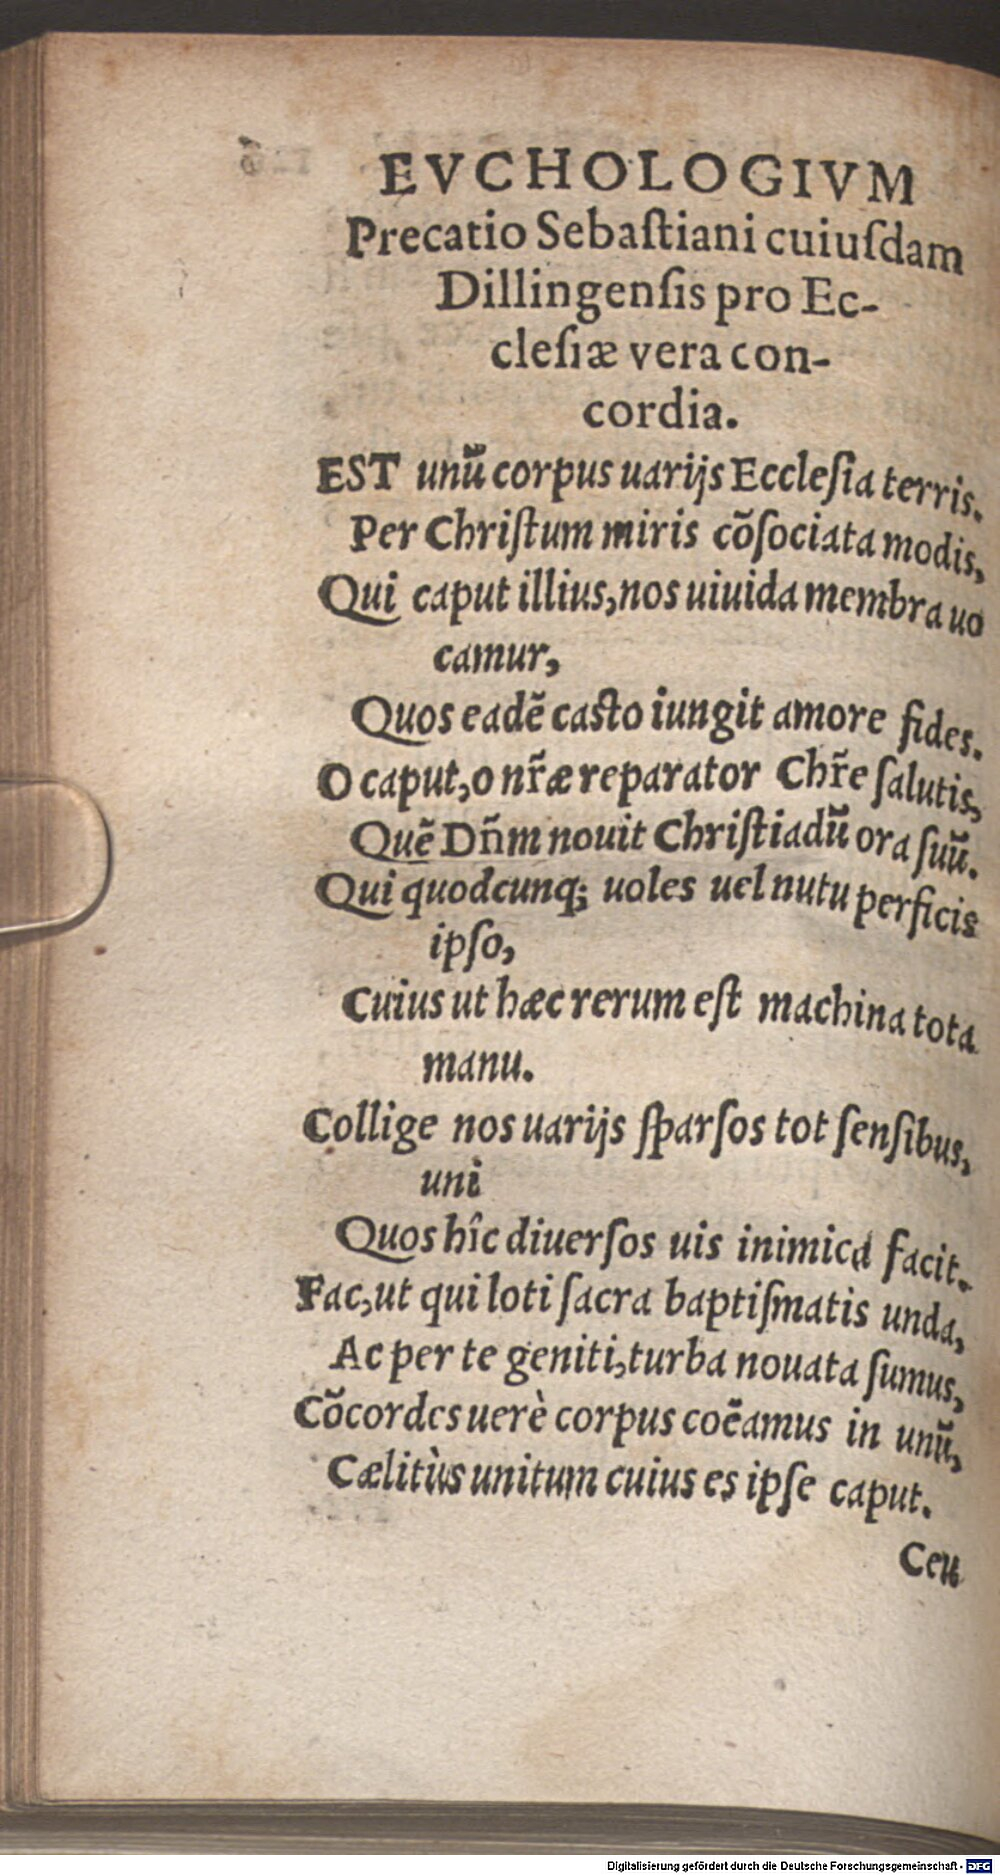 EVCHOLOGIVM
Precatio Sebaſtiani cuiuſdam
Dillingenſis pro Ec-
cleſiæ vera con-
cordia.
EST unū corpus uarijs Eccleſia terris.
Per Chriſtum miris cōſociata modis,
Qui caput illius, nos uiuida membra uo
camur,
Quos eadē caſto iungit amore fides.
O caput, o nr̃æ reparator Chr̃e ſalutis,
Quē Dñm nouit Chriſtiadū ora ſuū.
Qui quodcunq; uoles uel nutu perficis
ipſo,
Cuius ut hæc rerum eſt machina tota
manu.
Collige nos uarijs ſparſos tot ſenſibus,
uni
Quos hîc diuerſos uis inimica facit.
Fac, ut qui loti ſacra baptiſmatis unda,
Ac per te geniti, turba nouata ſumus,
Cōcordes uerè corpus coēamus in unū,
Cælitùs unitum cuius es ipſe caput.
Ceu
Digitalisierung gefördert durch die Deutsche Forschungsgemeinschaft - DFG